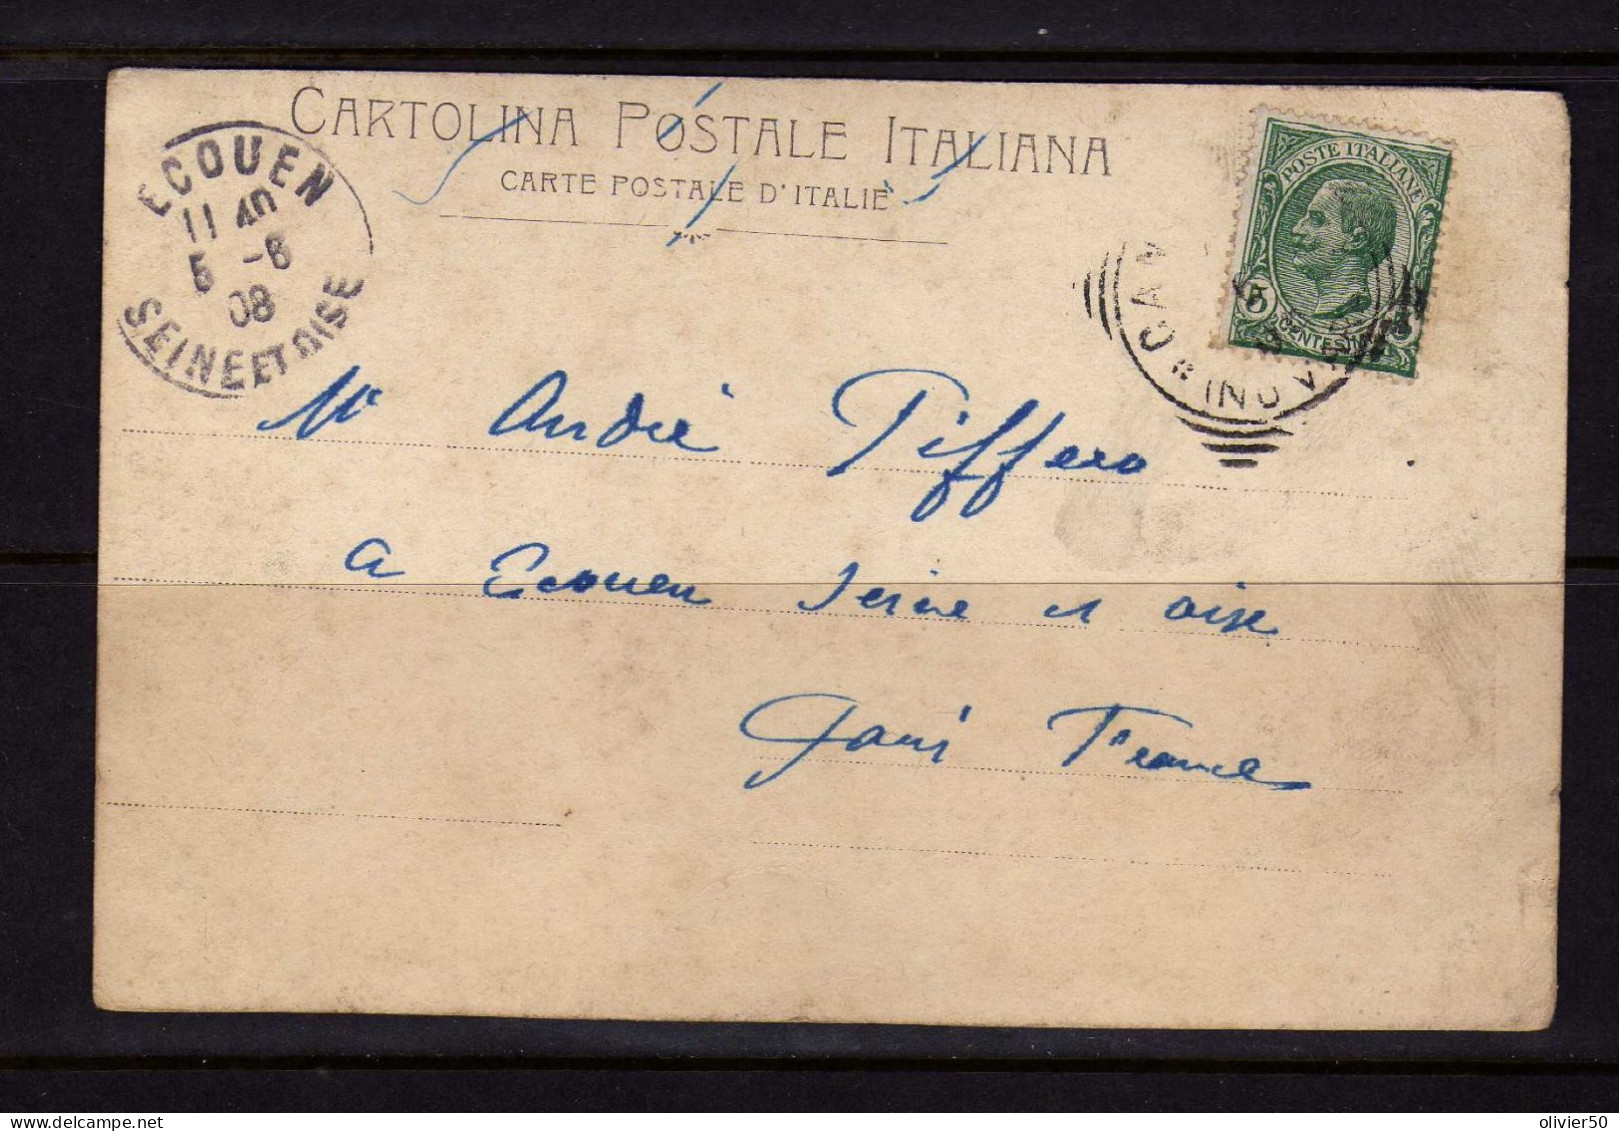 CARTOLINA POSTALE ITALIANA
CARTE POSTALE D'ITALIE
ECOUEN
11 40
5 -6
08
SEINE ET OISE
POSTE ITALIANE
5
CENTESIMI
Mr André Piffero
a Ecouen Seine et oise
Paris France
olivier50